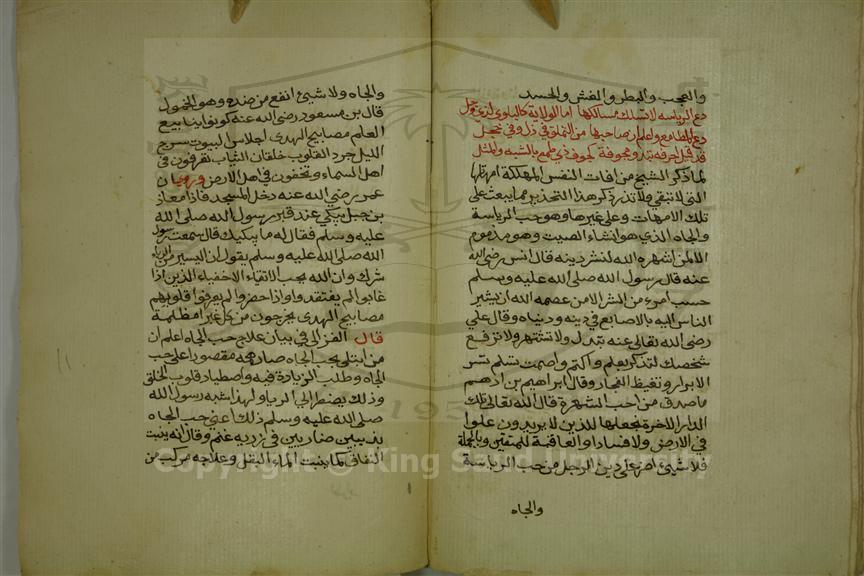 والعجب والبطر والغش والحسد
دع الرياسه لا تسلك مسالكها اما الولاية كالبلوى لذي وجل
دع المطامع واعلم ان صاحبها من التملق في ذل وفي خجل
قد قيل حرفه تبدو مجوفة كجوف ذي طمع بالشبه والمثل
لما ذكر الشيخ من افات النفس المهلكة امهاتها
التي لا تبقي ولا تذر ذكر هذا التحذير مما يبعث على
تلك الامهات وعلى غيرها وهو حب الرياسة
والجاه الذي هو انتشاء الصيت وهو مذموم
الا لمن اشهره الله لنشر دينه قال انس رضي الله
عنه قال رسول الله صلى الله عليه وسلم
حسب امرء من الشر الا من عصمه الله ان يشير
الناس اليه بالاصابع في دينه ودنياه وقال علي
رضي الله تعالى عنه تبذل ولا تشتهر ولا ترفع
شخصك لتذكر بعلم واكتم واصمت تسلم تسر
الابرار وتغيظ الفجار وقال ابراهيم بن ادهم
ما صدق من احب الشهرة قال الله تعالى تلك
الدار الاخرة نجعلها للذين لا يريدون علوا
في الارض ولا فسادا والعاقبة للمتقين وبالجملة
فلا شيئ اضر على دين الرجل من حب الرياسة
والجاه
والجاه ولا شيئ انفع من ضده وهو الخمول
قال بن مسعود رضي الله عنه كونوا ينابيع
العلم مصابيح الهدى اجلاس البيوت سرج
الليل جرد القلوب خلقان الثياب تعرفون في
اهل السماء وتخفون في اهل الارض وروي ان
عمر رضي الله عنه دخل المسجد فاذا معاذ
بن جبل يبكي عند قبر رسول الله صلى الله
عليه وسلم فقال له ما يبكيك قال سمعت رسول
الله صلى الله عليه وسلم يقول ان اليسير من الرياء
شرك وان الله يحب الاتقياء الاخفياء الذين اذا
غابوا لم يفتقدوا واذا حضروا لم يعرفوا قلوبهم
مصابيح الهدى يخرجون من كل غبراء مظلمة
قال الغزالي في بيان علاج حب الجاه اعلم ان
من ابتلي بحب الجاه صار همه مقصورا على حب
الجاه وطلب الزيادة فيه واصطياد قلوب الخلق
وذلك يضطر الي الريا ولهذا شبه رسول الله
صلى الله عليه وسلم ذلك اعني حب الجاه
بذيبين ضاريين في زريبه غنم وقال انه ينبت
النفاق كما ينبت الماء البقل وعلاجه مركب من
Copyright © King Saud University
195